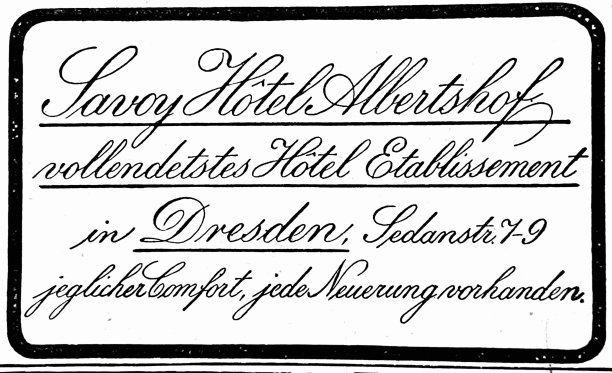 Savoy Hôtel Albertshof
vollendetstes Hôtel Etablissement
in Dresden, Sedanstr. 7-9
jeglicher Comfort, jede Neuerung vorhanden.